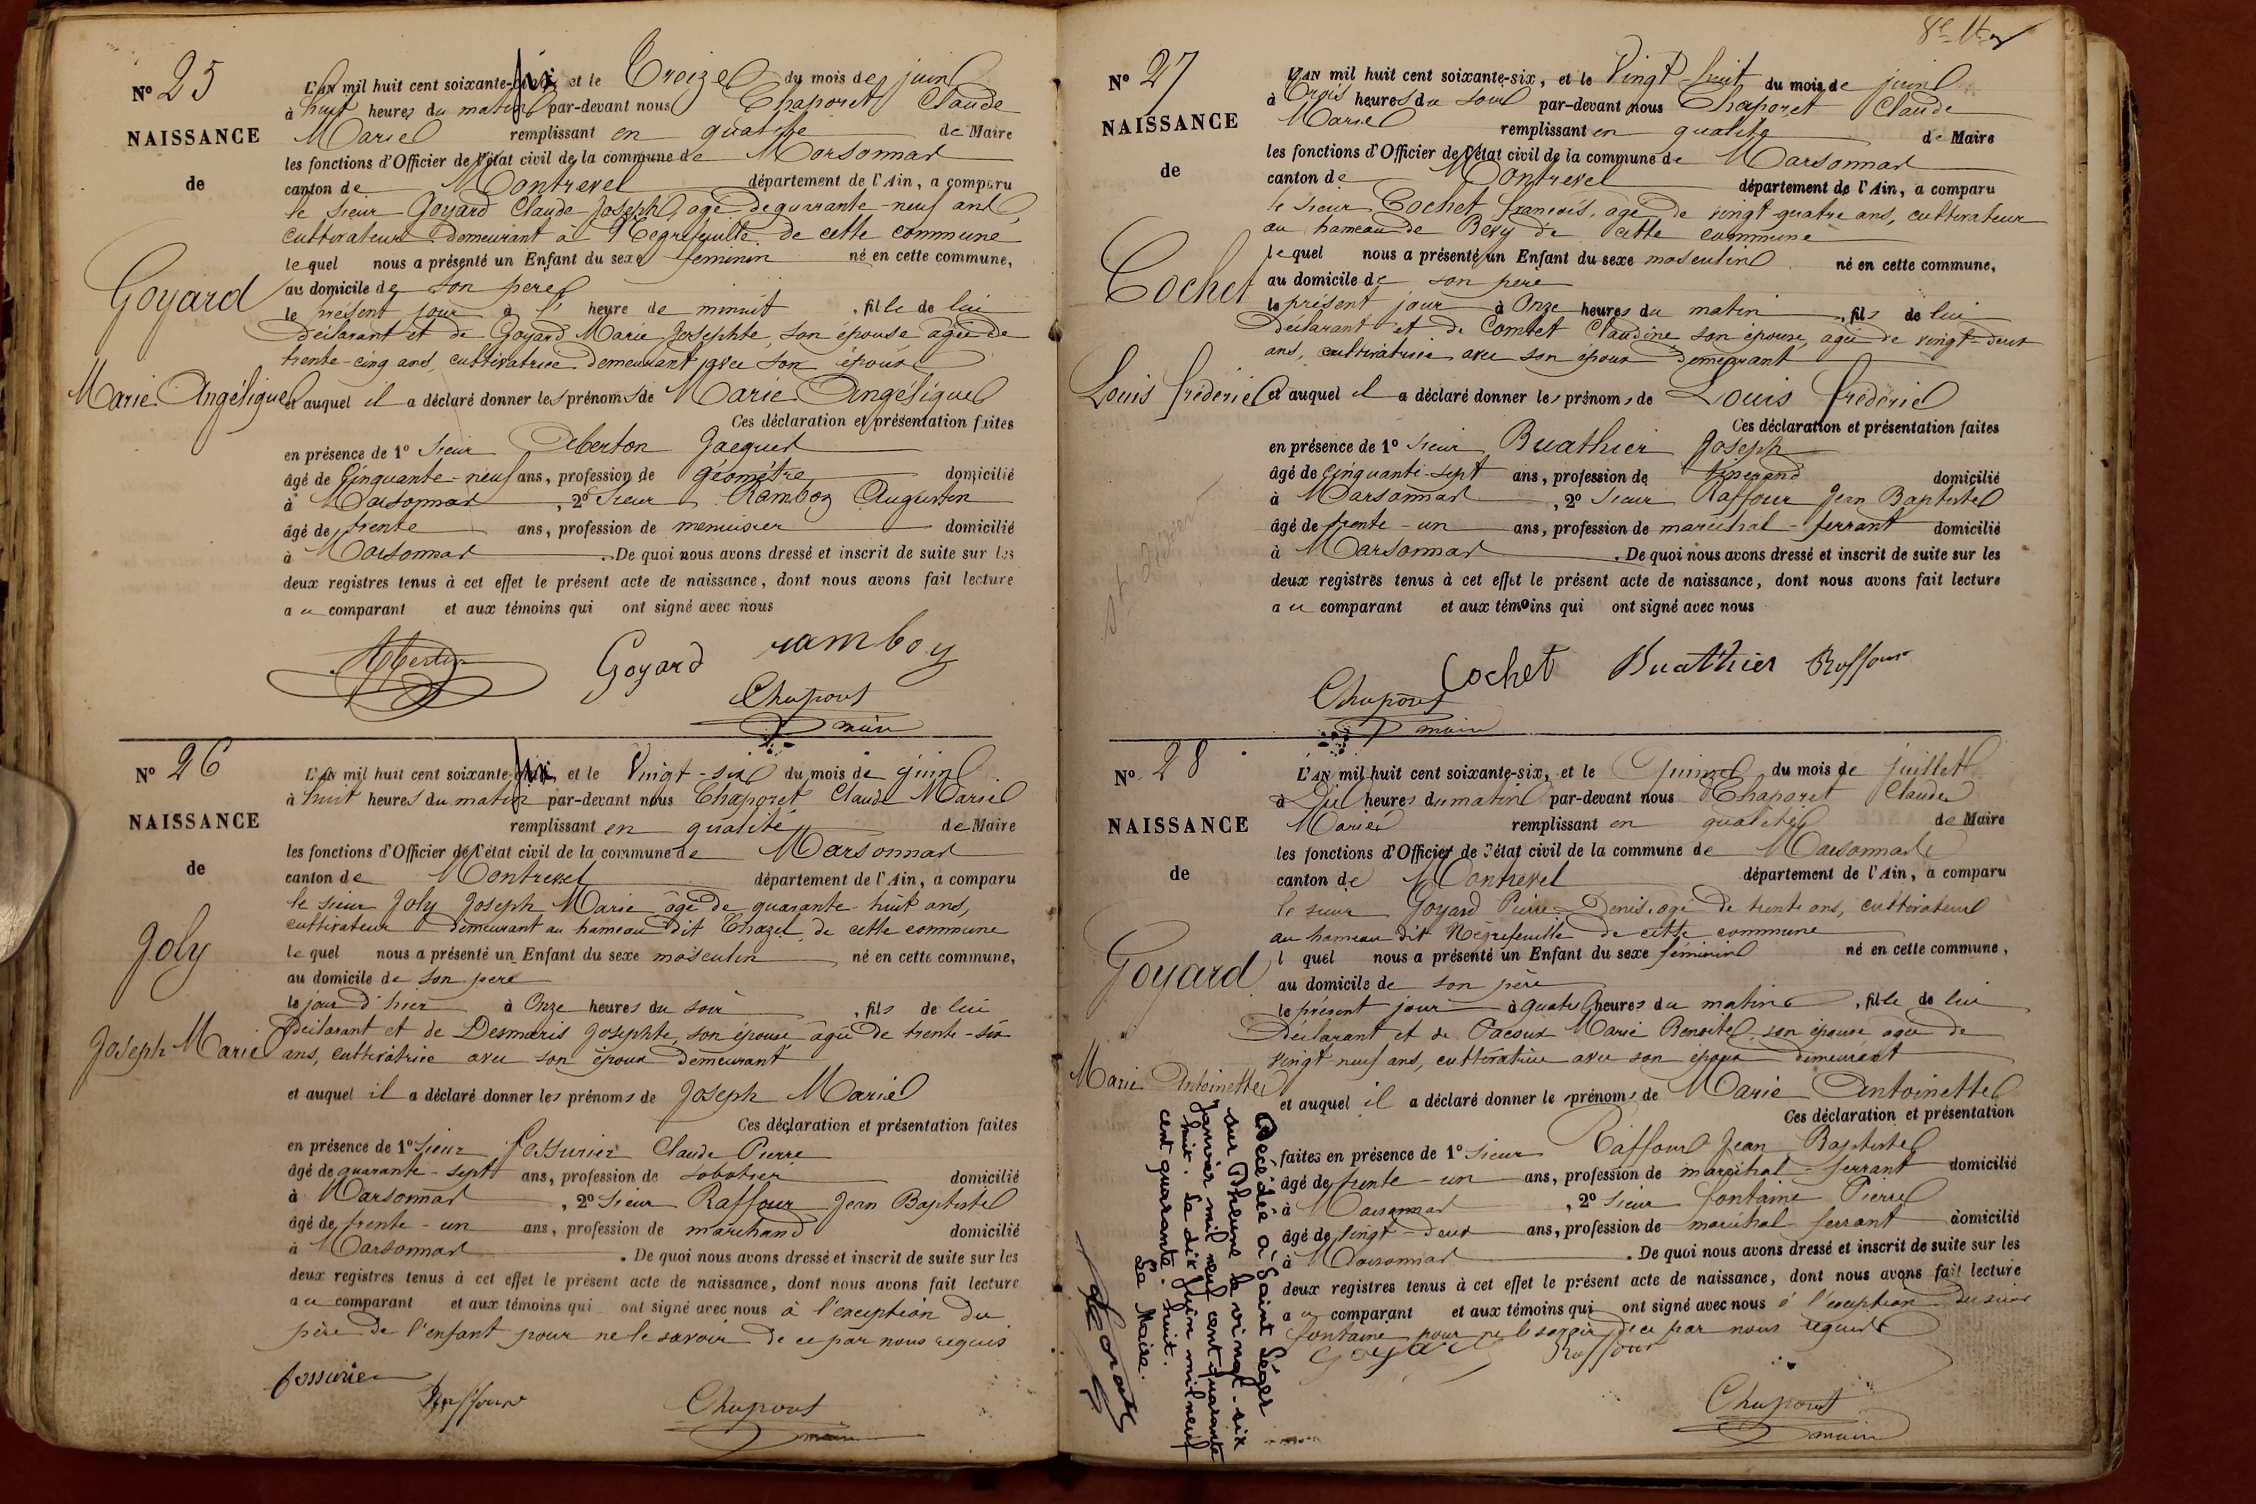 N° 25
NAISSANCE
de
Goyard
Marie Angélique
L'AN mil huit cent soixante-six et le Treize du mois de juin
à huit heures du matin par-devant nous Chaporet Claude
Marie remplissant en qualité de Maire
les fonctions d'Officier de l'état civil de la commune de Marsonnas
canton de Montrevel département de l'Ain, a comparu
le sieur Goyard Claude Joseph, agé de quarante-neuf ans,
cultivateur demeurant à Négrefeuille de cette commune
lequel nous a présenté un Enfant du sexe féminin né en cette commune,
au domicile de son père
le présent jour à heure de minuit , fille de lui
Déclarant et de Goyard Marie Josephte, son épouse agée de
trente-cinq ans, cultivatrice demeurant avec son époux
et auquel il a déclaré donner les prénoms de Marie Angélique
Ces déclaration et présentation faites
en présence de 1° sieur Jacques
âgé de Cinquante-neuf ans, profession de géomètre domicilié
à Marsonnas , 2° sieur Ramboz Augustin
âgé de trente ans, profession de menuisier domicilié
à Marsonnas . De quoi nous avons dressé et inscrit de suite sur les
deux registres tenus à cet effet le présent acte de naissance, dont nous avons fait lecture
au comparant et aux témoins qui ont signé avec nous
Goyard ramboz
Chaporet
maire
N° 26
NAISSANCE
de
Joly
Joseph Marie
L'AN mil huit cent soixante-six, et le Vingt-six du mois de juin
à huit heures du matin par-devant nous Chaporet Claude Marie
remplissant en qualité de Maire
les fonctions d'Officier de l'état civil de la commune de Marsonnas
canton de Montrevel département de l'Ain, a comparu
le sieur Joly Joseph Marie agé de quarante huit ans,
cultivateur demeurant au hameau dit Chazel de cette commune
lequel nous a présenté un Enfant du sexe masculin né en cette commune,
au domicile de son père
le jour d'hier à Onze heures du soir , fils de lui
Déclarant et de Desmaris Josephte, son épouse agée de trente-six
ans, cultivatrice avec son époux demeurant
et auquel il a déclaré donner les prénoms de Joseph Marie
Ces déclaration et présentation faites
en présence de 1° sieur Fossurier Claude Pierre
âgé de quarante-sept ans, profession de sabotier domicilié
à Marsonnas , 2° sieur Raffour Jean Baptiste
âgé de trente-un ans, profession de marchand domicilié
à Marsonnas . De quoi nous avons dressé et inscrit de suite sur les
deux registres tenus à cet effet le présent acte de naissance, dont nous avons fait lecture
au comparant et aux témoins qui ont signé avec nous à l'exception du
père de l'enfant pour ne le savoir de ce par nous requis
fossurier
Raffour
Chaporet
maire
N° 27
NAISSANCE
de
Cochet
Louis fréderic
L'AN mil huit cent soixante-six, et le Vingt-huit du mois de juin
à Trois heures du soir par-devant nous Chaporet Claude
Marie remplissant en qualité de Maire
les fonctions d'Officier de l'état civil de la commune de Marsonnas
canton de Montrevel département de l'Ain, a comparu
le sieur Cochet françois, agé de vingt-quatre ans, cultivateur
au hameau de Bevy de cette commune
lequel nous a présenté un Enfant du sexe masculin né en cette commune,
au domicile de son père
le présent jour à Onze heures du matin , fils de lui
Déclarant et de Comtet Claudine son épouse, agée de vingt-deux
ans, cultivatrice avec son époux demeurant
et auquel il a déclaré donner les prénoms de Louis fréderic
Ces déclaration et présentation faites
en présence de 1° sieur Buathier Joseph
âgé de cinquante-sept ans, profession de domicilié
à Marsonnas , 2° sieur Raffour Jean Baptiste
âgé de trente-un ans, profession de maréchal-ferrant domicilié
à Marsonnas . De quoi nous avons dressé et inscrit de suite sur les
deux registres tenus à cet effet le présent acte de naissance, dont nous avons fait lecture
au comparant et aux témoins qui ont signé avec nous
Cochet Buathier Raffour
Chaporet
maire
N° 28
NAISSANCE
de
Goyard
Marie Antoinette
L'AN mil huit cent soixante-six, et le du mois de juillet
à Dix heures du matin par-devant nous Chaporet Claude
Marie remplissant en qualité de Maire
les fonctions d'Officier de l'état civil de la commune de Marsonnas
canton de Montrevel département de l'Ain, a comparu
le sieur Goyard Pierre-Denis, agé de trente ans, cultivateur
au hameau dit Négrefeuille de cette commune
l quel nous a présenté un Enfant du sexe féminin né en cette commune,
au domicile de son père
le présent jour à quatre heures du matin , fille de lui
Déclarant et de Pacoud Marie Benoite, son épouse agée de
vingt neuf ans, cultivatrice avec son époux demeurant
et auquel il a déclaré donner le prénoms de Marie Antoinette
Ces déclaration et présentation
faites en présence de 1° sieur Raffour Jean Baptiste
âgé de trente-un ans, profession de maréchal-ferrant domicilié
à Marsonnas , 2° sieur fontaine Pierre
âgé de vingt-deux ans, profession de maréchal ferrant domicilié
à Marsonnas . De quoi nous avons dressé et inscrit de suite sur les
deux registres tenus à cet effet le présent acte de naissance, dont nous avons fait lecture
au comparant et aux témoins qui ont signé avec nous à l'exception du sieur
fontaine pour ne le savoir de ce par nous requis
Goyard Raffour
Chaporet
maire
Décédée à Saint Léger
sur Dheune le vingt-six
Janvier mil neuf cent quarante
huit. Le dix Juin mil neuf
cent quarante-huit.
Le Maire.